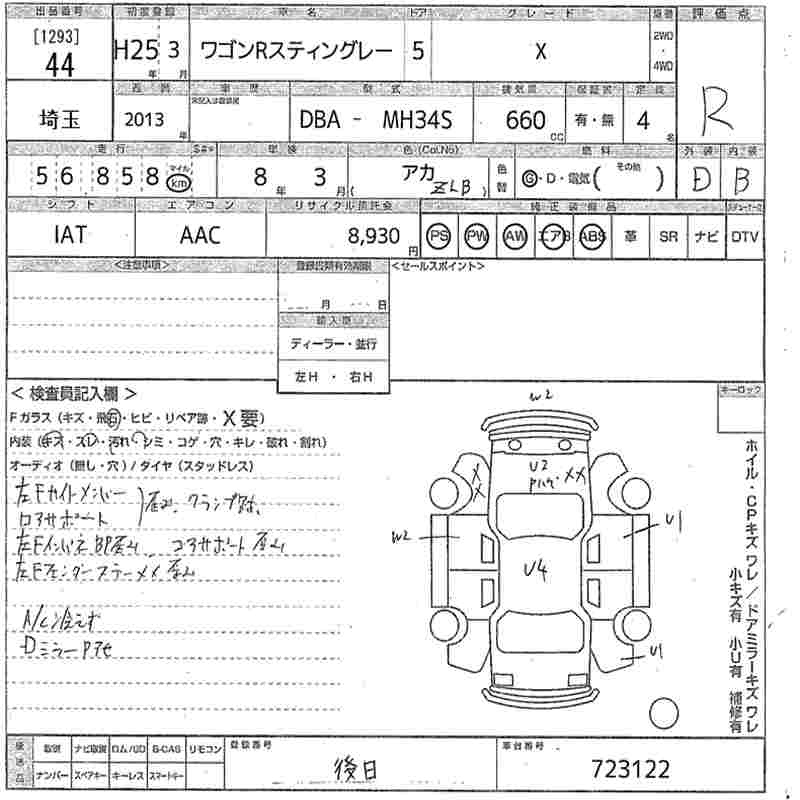 出品番号 初度登録 車名 ドア グレード 駆動 評価点
[1293] 44 H25 3 年 月 ワゴンRスティングレー 5 X 2WD ・ 4WD R
型式 排気量 保証書 定員
埼玉 2013 年 DBA - MH34S 660 CC 有・無 4 名
走行 車検 色(Col.No) 燃料 外装 内装
56,858 マイル km 8 年 3 月 アカ ( ZLB ) 色替 G・D・電気( その他 ) D B
シフト エアコン リサイクル預託金 純正装備品
IAT AAC 8,930 円 PS PW AW エアB ABS 革 SR ナビ DTV
<注意事項> <セールスポイント>
月 日
輸入車
ディーラー・並行
左H ・ 右H
< 検査員記入欄 > キーロック
Fガラス (キズ・飛石・ヒビ・リペア跡・X要)
内装 (キズ・スレ・汚れ・シミ・コゲ・穴・キレ・破れ・割れ)
オーディオ (無し・穴) / タイヤ (スタッドレス)
左Fサイドメンバー
コアサポート
歪み、クランプ跡、
左Fインパネ BP歪み コアサポート歪み
A/C冷えず
Dミラー
W2
U2
XX
XX
W2
U1
U4
U1
ホイル・CPキズワレ/ドアミラーキズワレ
小キズ有 小U有 補修有
取説 ナビ取説 ロム/CD B-CAS リモコン 登録番号 車台番号
ナンバー スペアキー キーレス スマートキー 後日 723122